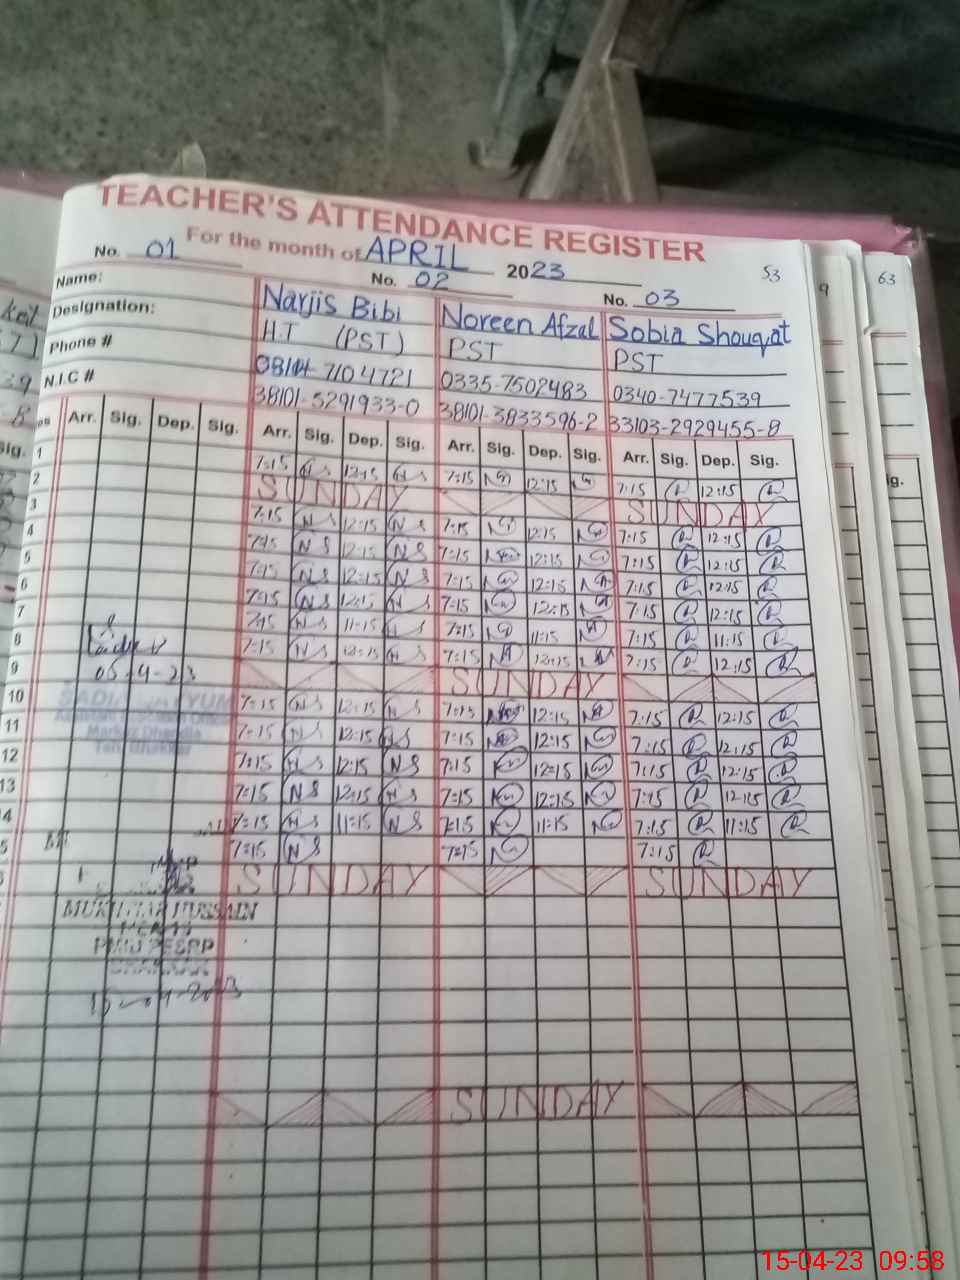 TEACHER'S ATTENDANCE REGISTER
For the month of APRIL 2023
53
63
9
No. 01 No. 02 No. 03
Name: Narjis Bibi Noreen Afzal Sobia Shouqat
Designation: H.T (PST) PST PST
Phone # 7104721 0335-7502483 0340-7477539
N.I.C # 38101-5291933-0 38101-3833596-2 33103-2929455-8
Arr. Sig. Dep. Sig. Arr. Sig. Dep. Sig. Arr. Sig. Dep. Sig. Arr. Sig. Dep. Sig.
1 7:15 12:15 7:15 12:15 7:15 12:15
2 SUNDAY SUNDAY
3 7:15 NS 12:15 NS 7:15 12:15 7:15 12:15
4 7:15 NS 12:15 NS 7:15 12:15 7:15 12:15
5 7:15 NS 12:15 NS 7:15 12:15 7:15 12:15
6 7:15 NS 12:15 NS 7:15 12:15 7:15 12:15
7 7:15 NS 11:15 NS 7:15 11:15 7:15 11:15
8 7:15 NS 12:15 NS 7:15 12:15 7:15 12:15
05-4-23
9 SUNDAY
10 7:15 NS 12:15 NS 7:15 12:15 7:15 12:15
11 7:15 NS 12:15 NS 7:15 12:15 7:15 12:15
12 7:15 NS 12:15 NS 7:15 12:15 7:15 12:15
13 7:15 NS 12:15 NS 7:15 12:15 7:15 12:15
14 7:15 NS 11:15 NS 7:15 11:15 7:15 11:15
5 7:15 NS 7:15 7:15
SUNDAY SUNDAY
MUKHTIAR HUSSAIN
15-04-2023
SUNDAY
15-04-23 09:58